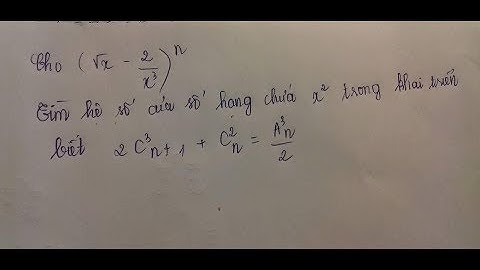 Cho (√x - 2/x³)ⁿ
Tìm hệ số của số hạng chứa x² trong khai triển
biết 2C³ₙ₊₁ + C²ₙ = A³ₙ/2